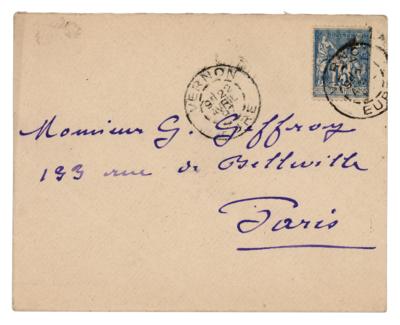 VERNON
22
EURE
15
EURE
Monsieur G. Geffroy
133 rue de Belleville
Paris